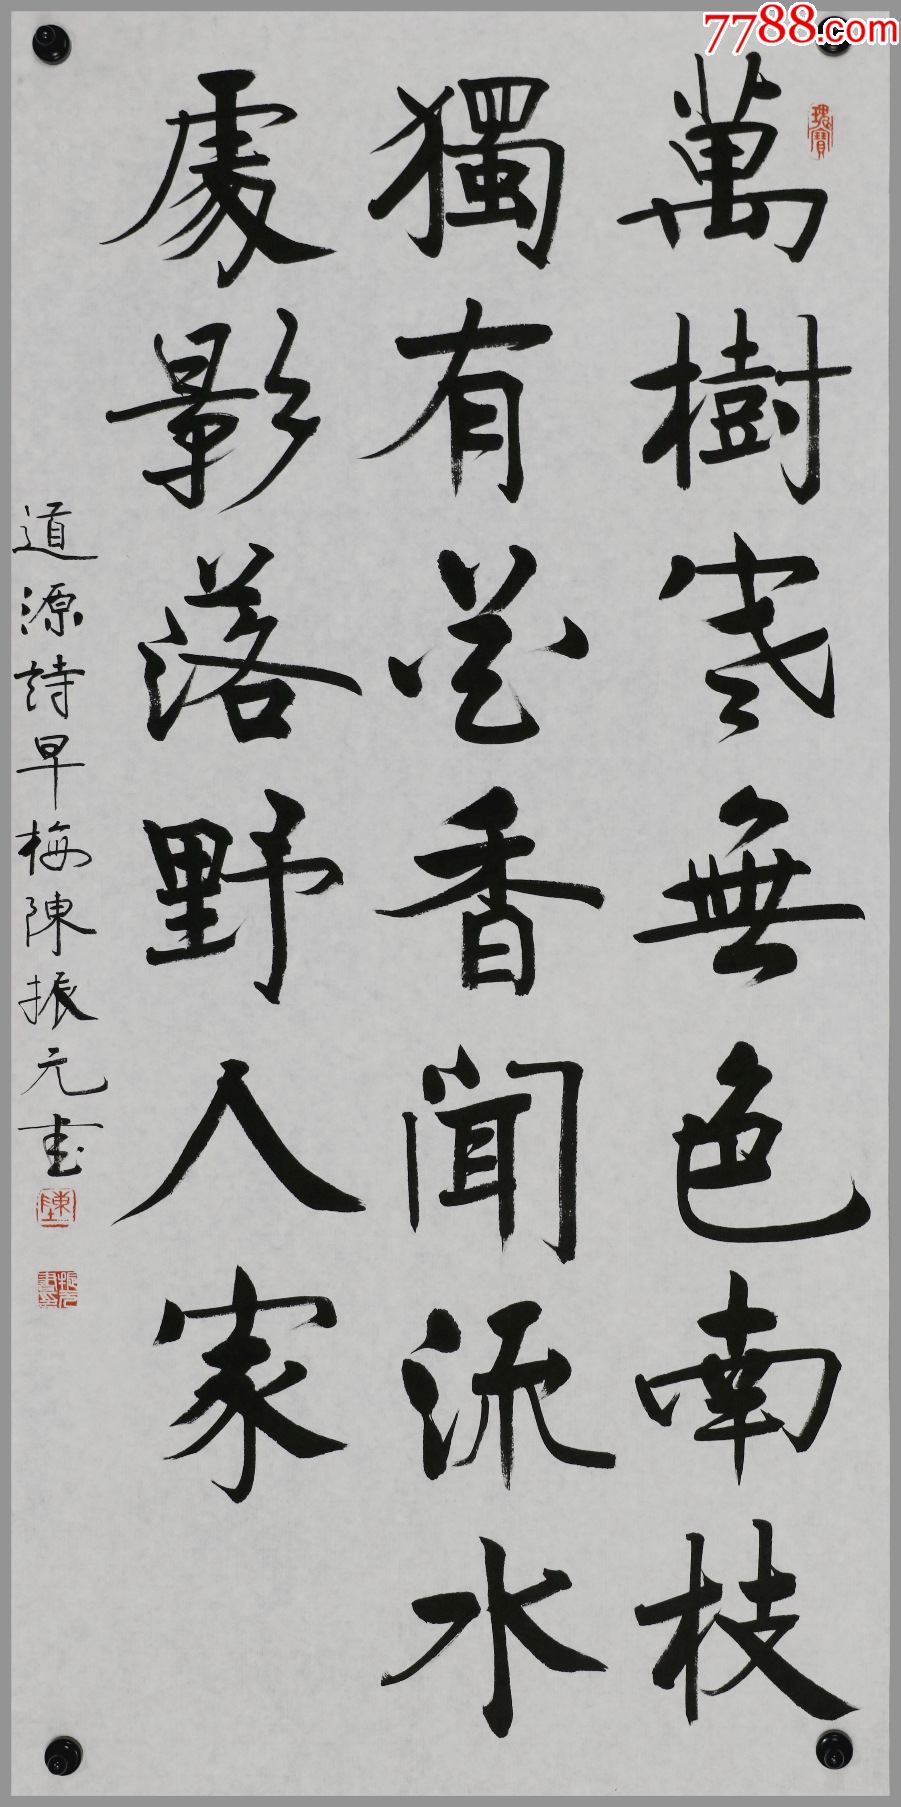 7788.com
瑰寶
萬樹寒無色南枝
獨有花香聞流水
處影落野人家
道源詩早梅陳振元書